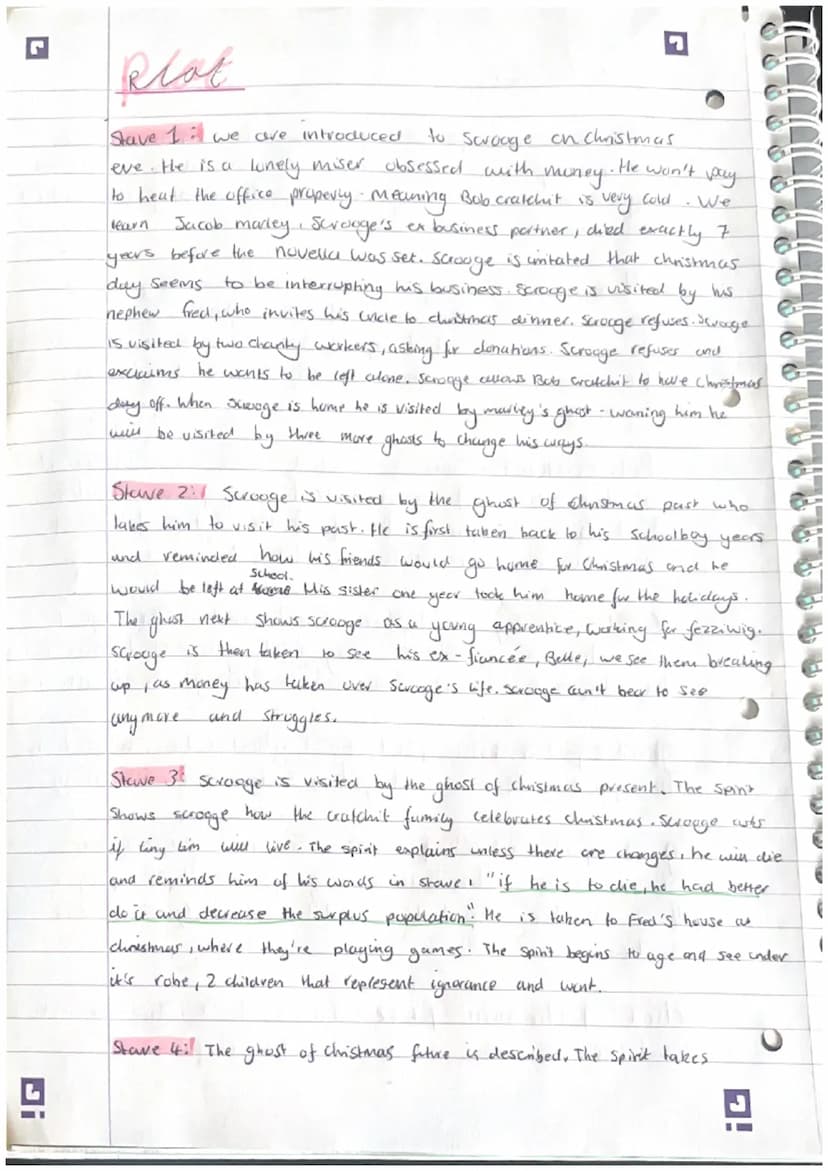 Plot
Stave 1: we are introduced to Scrooge on Christmas
eve. He is a lonely miser obsessed with money. He won't pay
to heat the office properly - meaning Bob cratchit is very cold. We
learn Jacob marley, Scrooge's ex business partner, died exactly 7
years before the novella was set. Scrooge is irritated that christmas
day seems to be interrupting his business. Scrooge is visited by his
nephew fred, who invites his uncle to christmas dinner. Scrooge refuses. Scrooge
is visited by two charity workers, asking for donations. Scrooge refuses and
exclaims he wants to be left alone. Scrooge allows Bob cratchit to have Christmas
day off. When scrooge is home he is visited by marley's ghost - warning him he
will be visited by three more ghosts to change his ways.
Stave 2: Scrooge is visited by the ghost of christmas past who
takes him to visit his past. He is first taken back to his schoolboy years
and reminded how his friends would go home for Christmas and he
would be left at school. His sister one year took him home for the holidays.
The ghost next shows scrooge as a young apprentice, working for fezziwig.
Scrooge is then taken to see his ex-fiancée, Belle, we see them breaking
up, as money has taken over Scrooge's life. Scrooge can't bear to see
anymore and struggles.
Stave 3: Scrooge is visited by the ghost of christmas present. The spirit
shows scrooge how the cratchit family celebrates christmas. Scrooge asks
if tiny tim will live. The spirit explains unless there are changes, he will die
and reminds him of his words in stave 1 "if he is to die, he had better
do it and decrease the surplus population". He is taken to Fred's house at
christmas, where they're playing games. The spirit begins to age and see under
it's robe, 2 children that represent ignorance and want.
Stave 4: The ghost of christmas future is described. The spirit takes